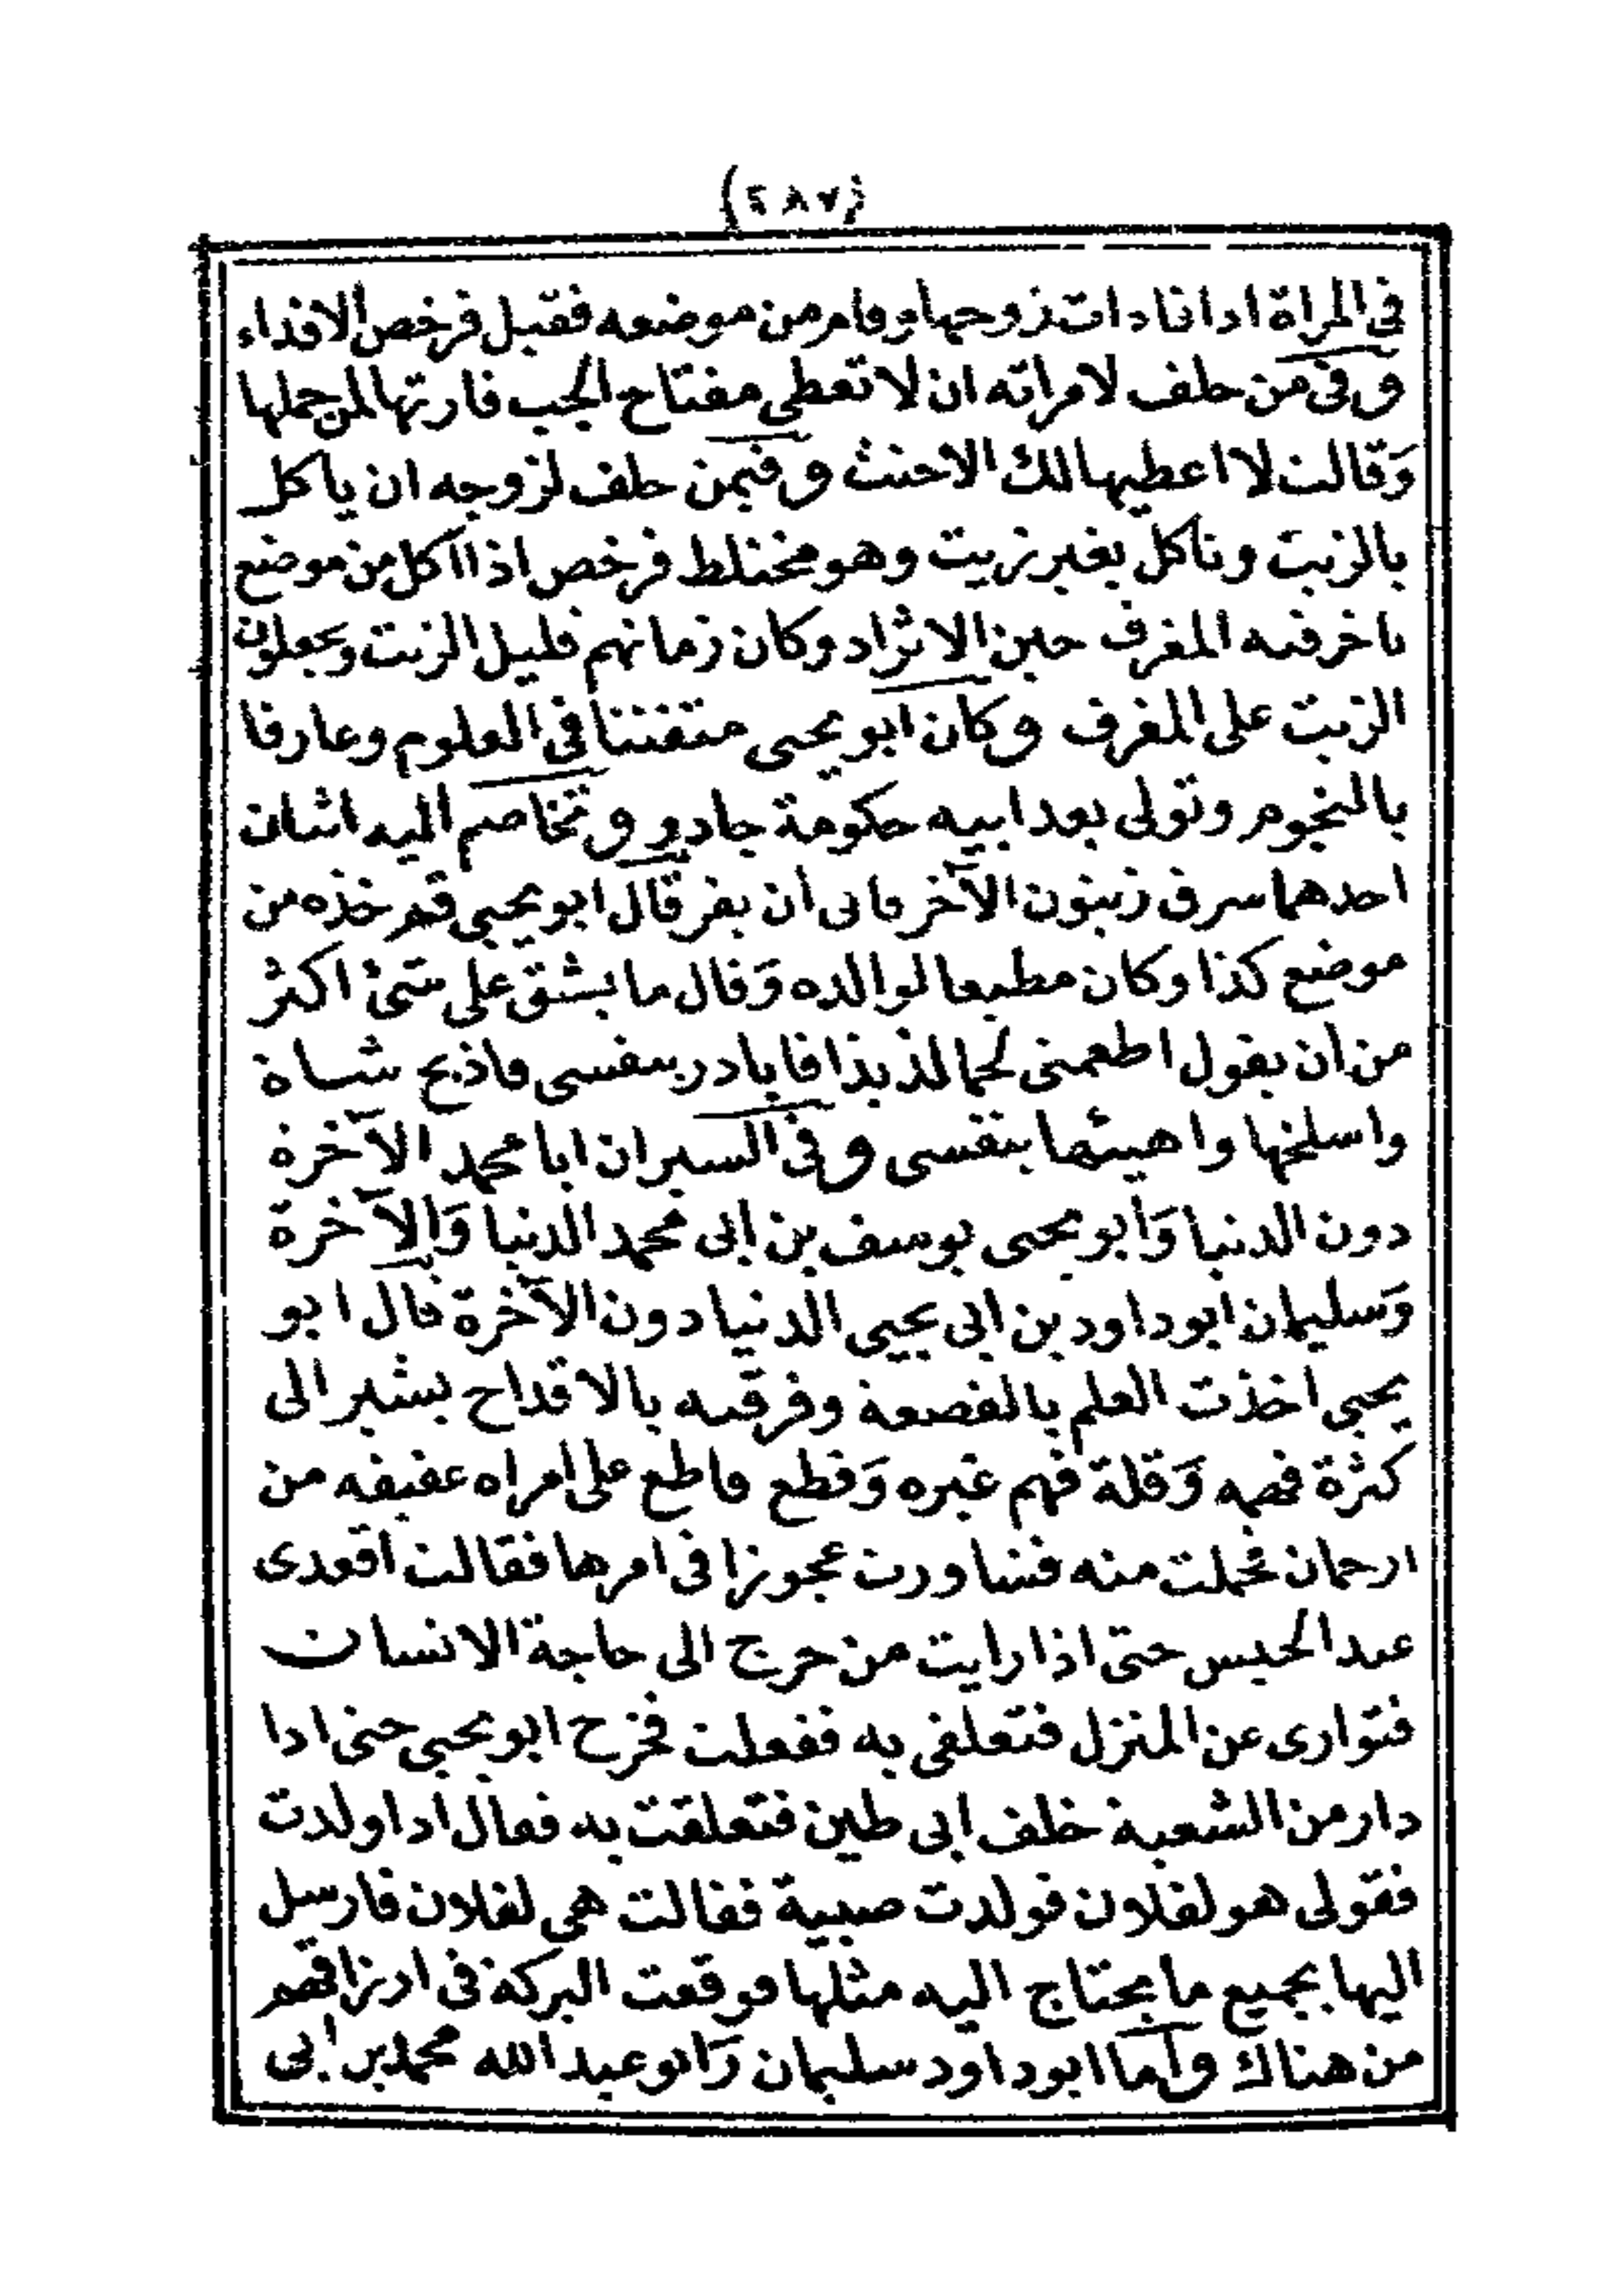 (٢٨٧)
فى المراة اذا نادات زوجها وقام من موضعه فقبل فرخص الافداء
وفى من حلف لامراته ان لا تعطى مفتاح الجب فارتها لمن حملها
وَقالت لا اعطيها لك الاحنث وفيمن حلف لزوجه ان ياكل
بالزيت وتاكل بغير زيت وهو مختلط فرخص اذا اكل من موضع
ياخر فيه المغرف حين الاثراد وكان زمانهم قليل الزيت ويجعلون
الزيت على المغرف وكان ابو يحيى متفننا فى العلوم وعارفا
بالنجوم وتولى بعد ابيه حكومة جادو وتخاصم اليه اثنان
احدهما سرق زيتون الآخر فابى ان يقر قال ابو يحيى قم خذه من
موضع كذا وكان مطيعا لوالده وَقال ما يشق على شئ اكثر
من ان يقول اطعمنى لحما لذيذا فابادر بنفسى فاذبح شاة
واسلخها واهيئها بنفسى وفى السير ان ابا محمد الآخرة
دون الدنيا وَابو يحيى يوسف بن ابى محمد الدنيا وَالآخرة
وَسليمان ابو داود بن ابى يحيى الدنيا دون الآخرة قال ابو
يحيى اخذت العلم بالقصعة وفرقته بالاقداح يشير الى
كثرة فهمه وَقلة فهم غيره وَقطع قاطع على امراه عفيفه من
ارحمان فحملت منه فشاورت عجوزا فى امرها فقالت اقعدى
عند الحيس حتى اذا رايت من خرج الى حاجة الانسان
فتوارى عن المنزل فتعلقى به ففعلت فخرج ابو يحيى حتى اذا
دار من الشعبة خلف ابى طين فتعلقت به فقال اذا ولدت
فقولى هو لفلان فولدت صبية فقالت هى لفلان فارسل
اليها بجميع ما يحتاج اليه مثلها فوقعت البركة فى ارزاقهم
من هناك وَاما ابو داود سليمان وَابو عبد الله محمد بن ابى